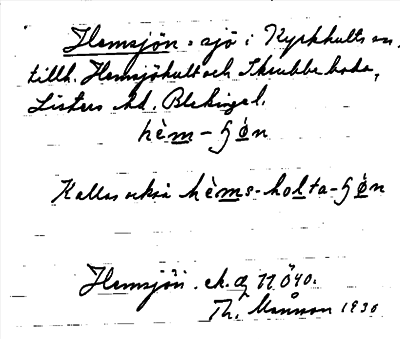 Hemsjön. sjö i Kyrkhults sn.
tillh. Hemsjökult och Skrubbeboda,
Listers hd. Blekinge l.
hèm-ʃøn
Kallas också hèms-holta-ʃøn
Hemsjön. ek. 77 Ö40.
Th. Månsson 1930